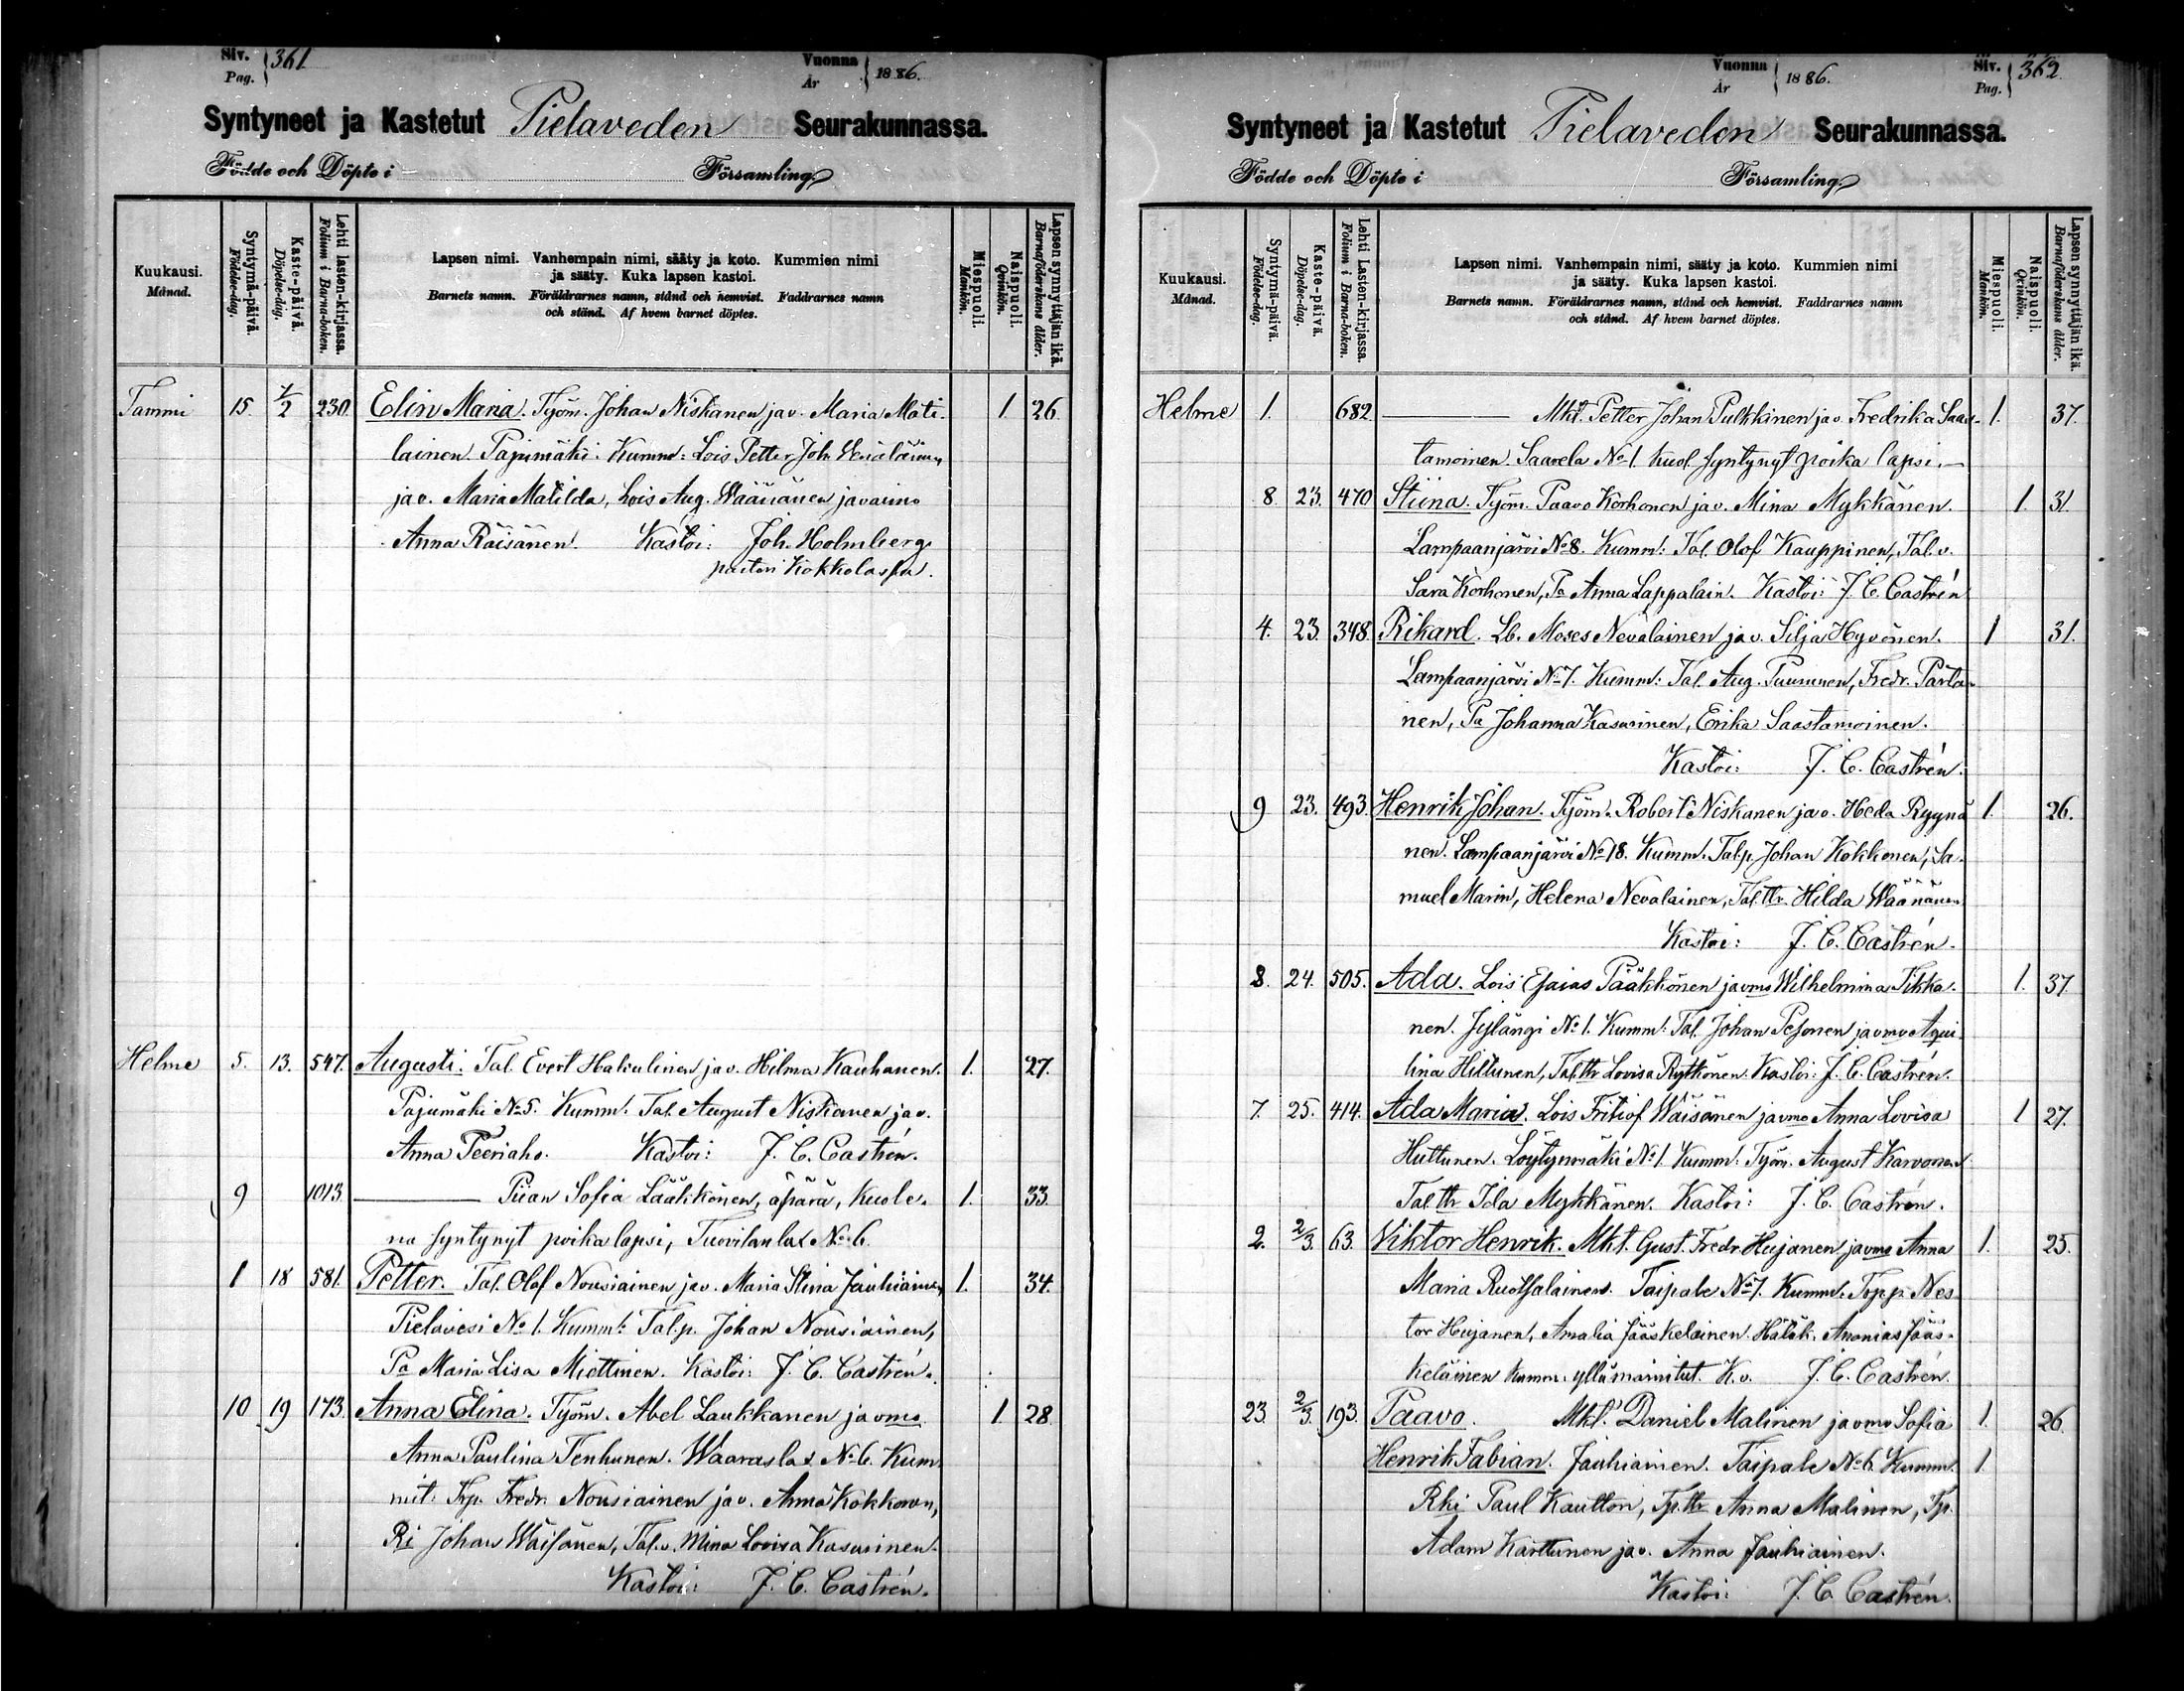 Siv. Pag. 361
Vuonna År 1886.
Syntyneet ja Kastetut Pielaveden Seurakunnassa.
Födde och Döpte i Församling
Kuukausi. Månad.
Syntymä-päivä. Födelse-dag.
Kaste-päivä. Döpelse-dag.
Lehti lasten-kirjassa. Folium i Barna-boken.
Lapsen nimi. Vanhempain nimi, sääty ja koto. Kummien nimi
ja sääty. Kuka lapsen kastoi.
Barnets namn. Föräldrarnes namn, stånd och hemvist. Faddrarnes namn
och stånd. Af hvem barnet döptes.
Miespuoli. Mankön.
Naispuoli. Qvinkön.
Lapsen synnyttäjän ikä. Barnaföderskans ålder.
Tammi 15. 1/2 230. Elin Maria. Työm. Johan Niskanen ja v. Maria Mati- 1. 26.
lainen. Pajumäki. Kumm: Lois Petter Joh.
ja v. Maria Matilda, Lois Aug. Wäänänen ja vaimo
Anna Räisänen. Kastoi: Joh. Holmberg.
pastori Kokkolassa.
Helme 5. 13. 547. Augusti. Tal. Evert Hakulinen ja v. Hilma Kauhanen. 1. 27.
Pajumäki No 5. Kumm. Tal. August Niskanen ja v.
Anna Peeriaho. Kastoi: J. C. Castrén.
9 1013. Piian Sofia Lääkkönen, äpärä, Kuole- 1. 33.
na syntynyt poikalapsi, Tuovilanlax No 6.
1 18 581. Petter. Tal. Olof Nousiainen ja v. Maria Stina Jauhiainen 1. 34.
Pielavesi No 1. Kumm: Tal.p. Johan Nousiainen,
Pa Maria Lisa Miettinen. Kastoi: J. C. Castrén.
10 19 173. Anna Elina. Työm. Abel Laukkanen ja vmo 1. 28.
Anna Paulina Tenhunen. Waaraslax No 6. Kum
mit: Trp. Fredr. Nousiainen ja v. Anna Kokkonen,
Ri Johan Wäisänen, Tal.v. Mina Lovisa Kasurinen.
Kastoi: J. C. Castrén.
Vuonna År 1886.
Siv. Pag. 362
Syntyneet ja Kastetut Pielaveden Seurakunnassa.
Födde och Döpte i Församling
Kuukausi. Månad.
Syntymä-päivä. Födelse-dag.
Kaste-päivä. Döpelse-dag.
Lehti Lasten-kirjassa. Folium i Barna-boken.
Lapsen nimi. Vanhempain nimi, sääty ja koto. Kummien nimi
ja sääty. Kuka lapsen kastoi.
Barnets namn. Föräldrarnes namn, stånd och hemvist. Faddrarnes namn
och stånd. Af hvem barnet döptes.
Miespuoli. Mankön.
Naispuoli. Qvinkön.
Lapsen synnyttäjän ikä. Barnaföderskans ålder.
Helme 1. 682 Mkt. Petter Johan Pulkkinen ja v. Fredrika Saas- 1. 37.
tamoinen. Saarela No 1. Kuol. syntynyt poika lapsi.
8. 23. 470 Stiina. Työm. Paavo Korhonen ja v. Mina Mykkänen. 1. 31.
Lampaanjärvi No 8. Kumm: Tal. Olof Kauppinen, Tal.v.
Sara Korhonen, Pa Anna Lappalain. Kastoi: J. C. Castrén
4. 23. 348. Rikard. Lb. Moses Nevalainen ja v. Silja Hyvönen. 1 31.
Lampaanjärvi No 7. Kumm: Tal. Aug. Puumnen, Fredr. Parta-
nen, Pa Johanna Kasurinen, Erika Saastamoinen.
Kastoi: J. C. Castrén.
9 23. 493. Henrik Johan. Työm. Robert Niskanen ja v. Heda Ryynä 1. 26.
nen. Lampaanjärvi No 18. Kumm. Tal.p. Johan Kokkonen, Sa-
muel Marin, Helena Nevalainen, Tal.ttr. Hilda Wäänänen
Kastoi: J. C. Castrén.
8. 24. 505. Ada. Lois Esaias Pääkkönen ja vmo Wilhelmina Tikka- 1. 37.
nen. Jylängi No 1. Kumm: Tal. Johan Pesonen ja vmo Aqui
lina Hiltunen, Tal.ttr Lovisa Rytkönen. Kastoi: J. C. Castrén.
7. 25. 414. Ada Maria. Lois Fritiof Wäisänen ja vmo Anna Lovisa 1 27.
Huttunen. Löytynmäki No 1. Kumm: Työm. August Karvonen
Tal.ttr Ida Mykkänen. Kastoi: J. C. Castrén.
2. 2/3. 63. Viktor Henrik. Mkt. Gust. Fredr. Hujanen ja vmo Anna 1. 25.
Maria Ruotsalainen. Taipale No 7. Kumm. Trp.p. Nes
tor Hujanen, Amalia Jääskeläinen. Hätäk. Ananias Jääs-
keläinen kumm. yllämainitut. K. v. J. C. Castrén.
23. 2/3. 193. Paavo. Mkt. Daniel Malinen ja vmo Sofia 1. 26.
Henrik Fabian. Jauhiainen. Taipale No 6. Kumm. 1.
Rki Paul Kautton, Tp.ttr Anna Malinen, Tp.
Adam Karttunen ja v. Anna Jauhiainen.
Kastoi: J. C. Castrén.